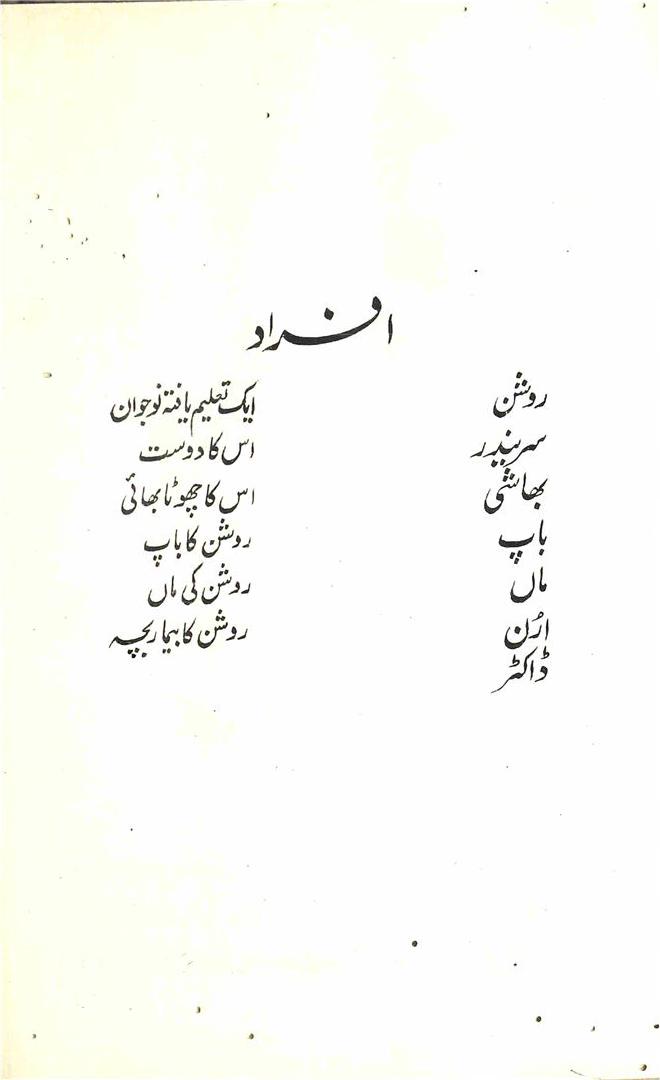 افراد
روشن ایک تعلیم یافتہ نوجوان
سریندر اس کا دوست
بھاشی اس کا چھوٹا بھائی
باپ روشن کا باپ
ماں روشن کی ماں
ارُن روشن کا بیمار بچہ
ڈاکٹر